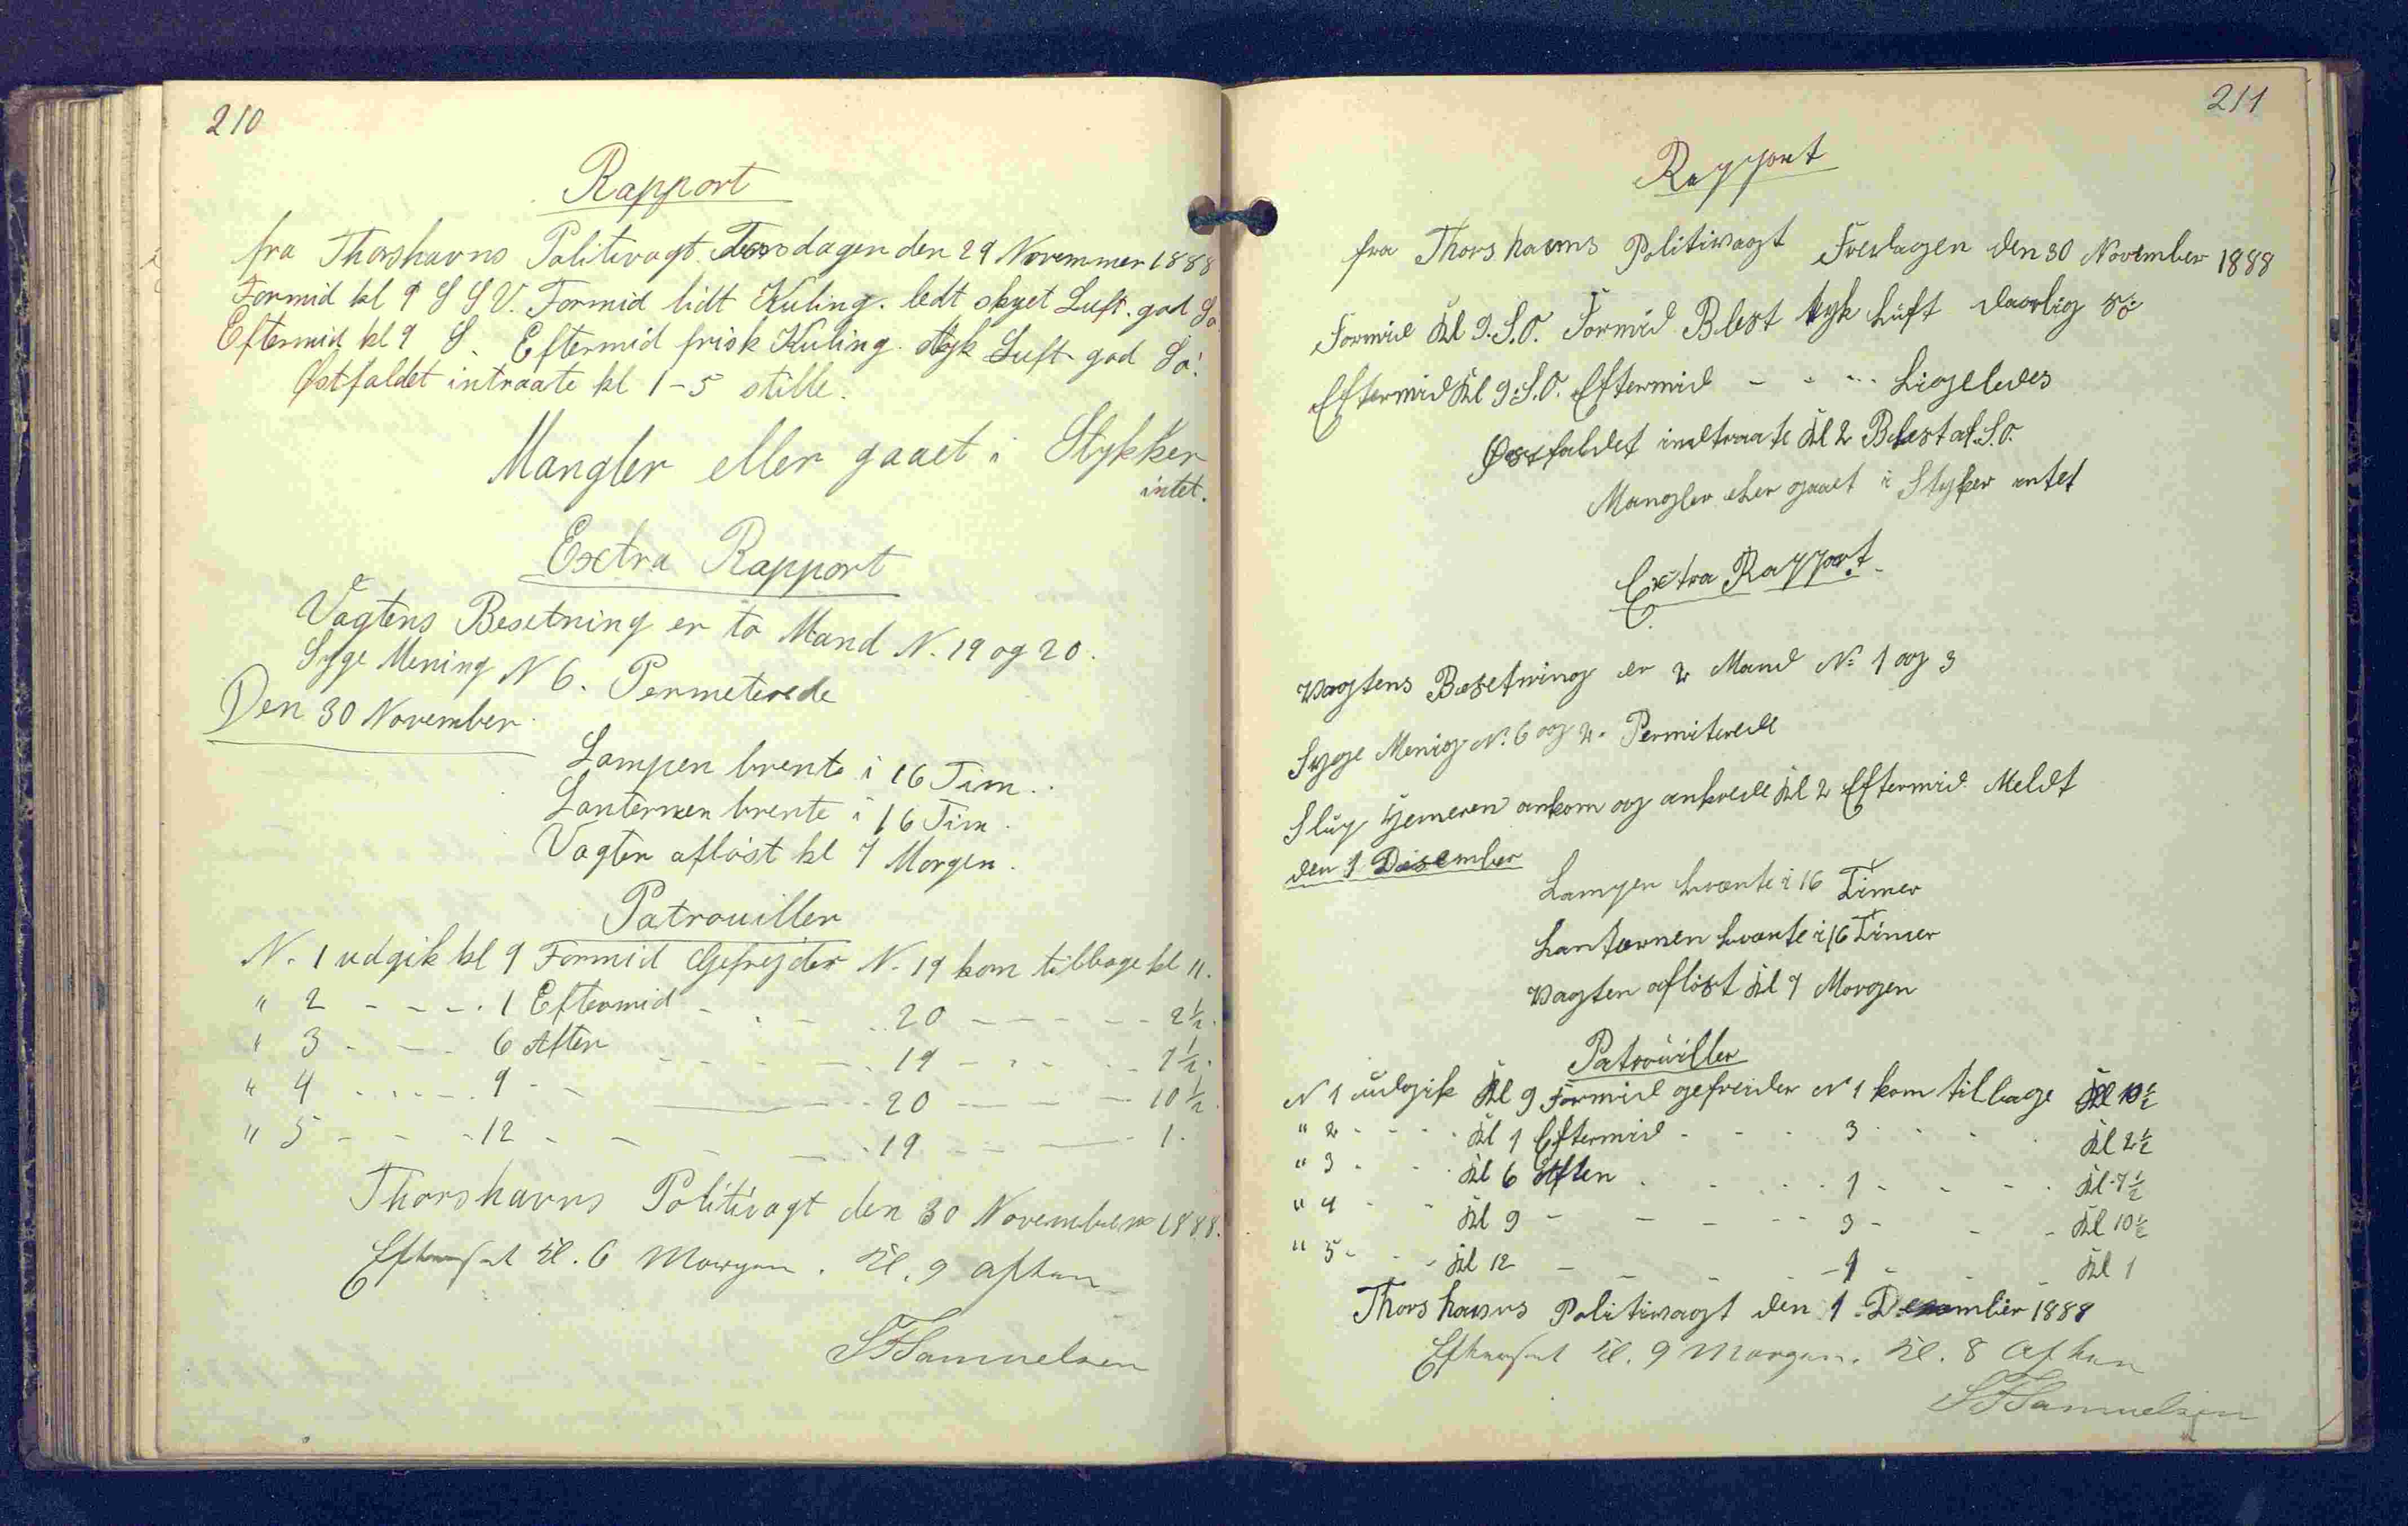 210
Rapport
fra Thorshavns Politivagt Torsdagen den 29 Novemmer 1888
Formid kl 9 S S V. Formid lidt Kuling. ledt skyet Luft. god Sø
Eftermid kl 9 S. Eftermid frisk Kuling. tyk Luft god Sø.
Østfaldet intraate kl 1-5 stille.
Mangler eller gaaet i Stykker
intet.
Extra Rapport
Vagtens Besetning er to Mand N. 19 og 20.
Syge Mening N 6. Permeterede
Den 30 November
Lampen brente i 16 Tim.
Lanternen brente i 16 Tim.
Vagten afløst kl 7 Morgen.
Patrouiller
N. 1 udgik kl 9 Formid Gefrejder N. 19 kom tilbage kl 11.
" 2 - - - - 1 Eftermid - - - 20 - - - - 2½.
" 3 - - - 6 Aften - - - - 19 - - - - 7½.
" 4 - - - - 9 - - - 20 - - - 10½.
" 5 - - - 12 - - - - 19 - - - 1.
Thorshavns Politivagt den 30 November 1888.
Efterseet Kl. 6 Morgen. Kl. 9 Aften
SFSamuelsen
211
Rapport
fra Thorshavns Politivagt Fredagen den 30 November 1888
Formid Kl 9. S.O. Formid Blest tyk Luft daarlig Sø
Eftermid Kl 9. S.O. Eftermid - - - Ligeledes
Østfaldet indtraate Kl 2 Blest af. S.O.
Mangler eler gaaet i Styker intet
Extra Rapport.
Vagtens Besetning er 2 Mand No 1 og 3
Syge Menig N. 6 og 2. Permiterede
Slup Hjemeren ankom og ankrede Kl 2 Eftermid Meldt
den 1 Desember
Lampen brænte i 16 Timer
Lanternen brænte i 16 Timer
Vagten afløst Kl 7 Morgen
Patrouiller
N 1 udgik Kl 9 Formid gefreider N 1 kom tilbage Kl 10½
" 2 - - - - Kl 1 Eftermid - - - 3 - - - Kl 2½
" 3 - - - Kl 6 Aften - - - - 1 - - - Kl. 7½
" 4 - - Kl 9 - - - - - 3 - - - Kl 10½
" 5 - - - Kl 12 - - - - - 1 - - - Kl 1
Thorshavns Politivagt den 1. Desember 1888
Efterseet Kl. 9 Morgen. Kl. 8 Aften
SFSamuelsen